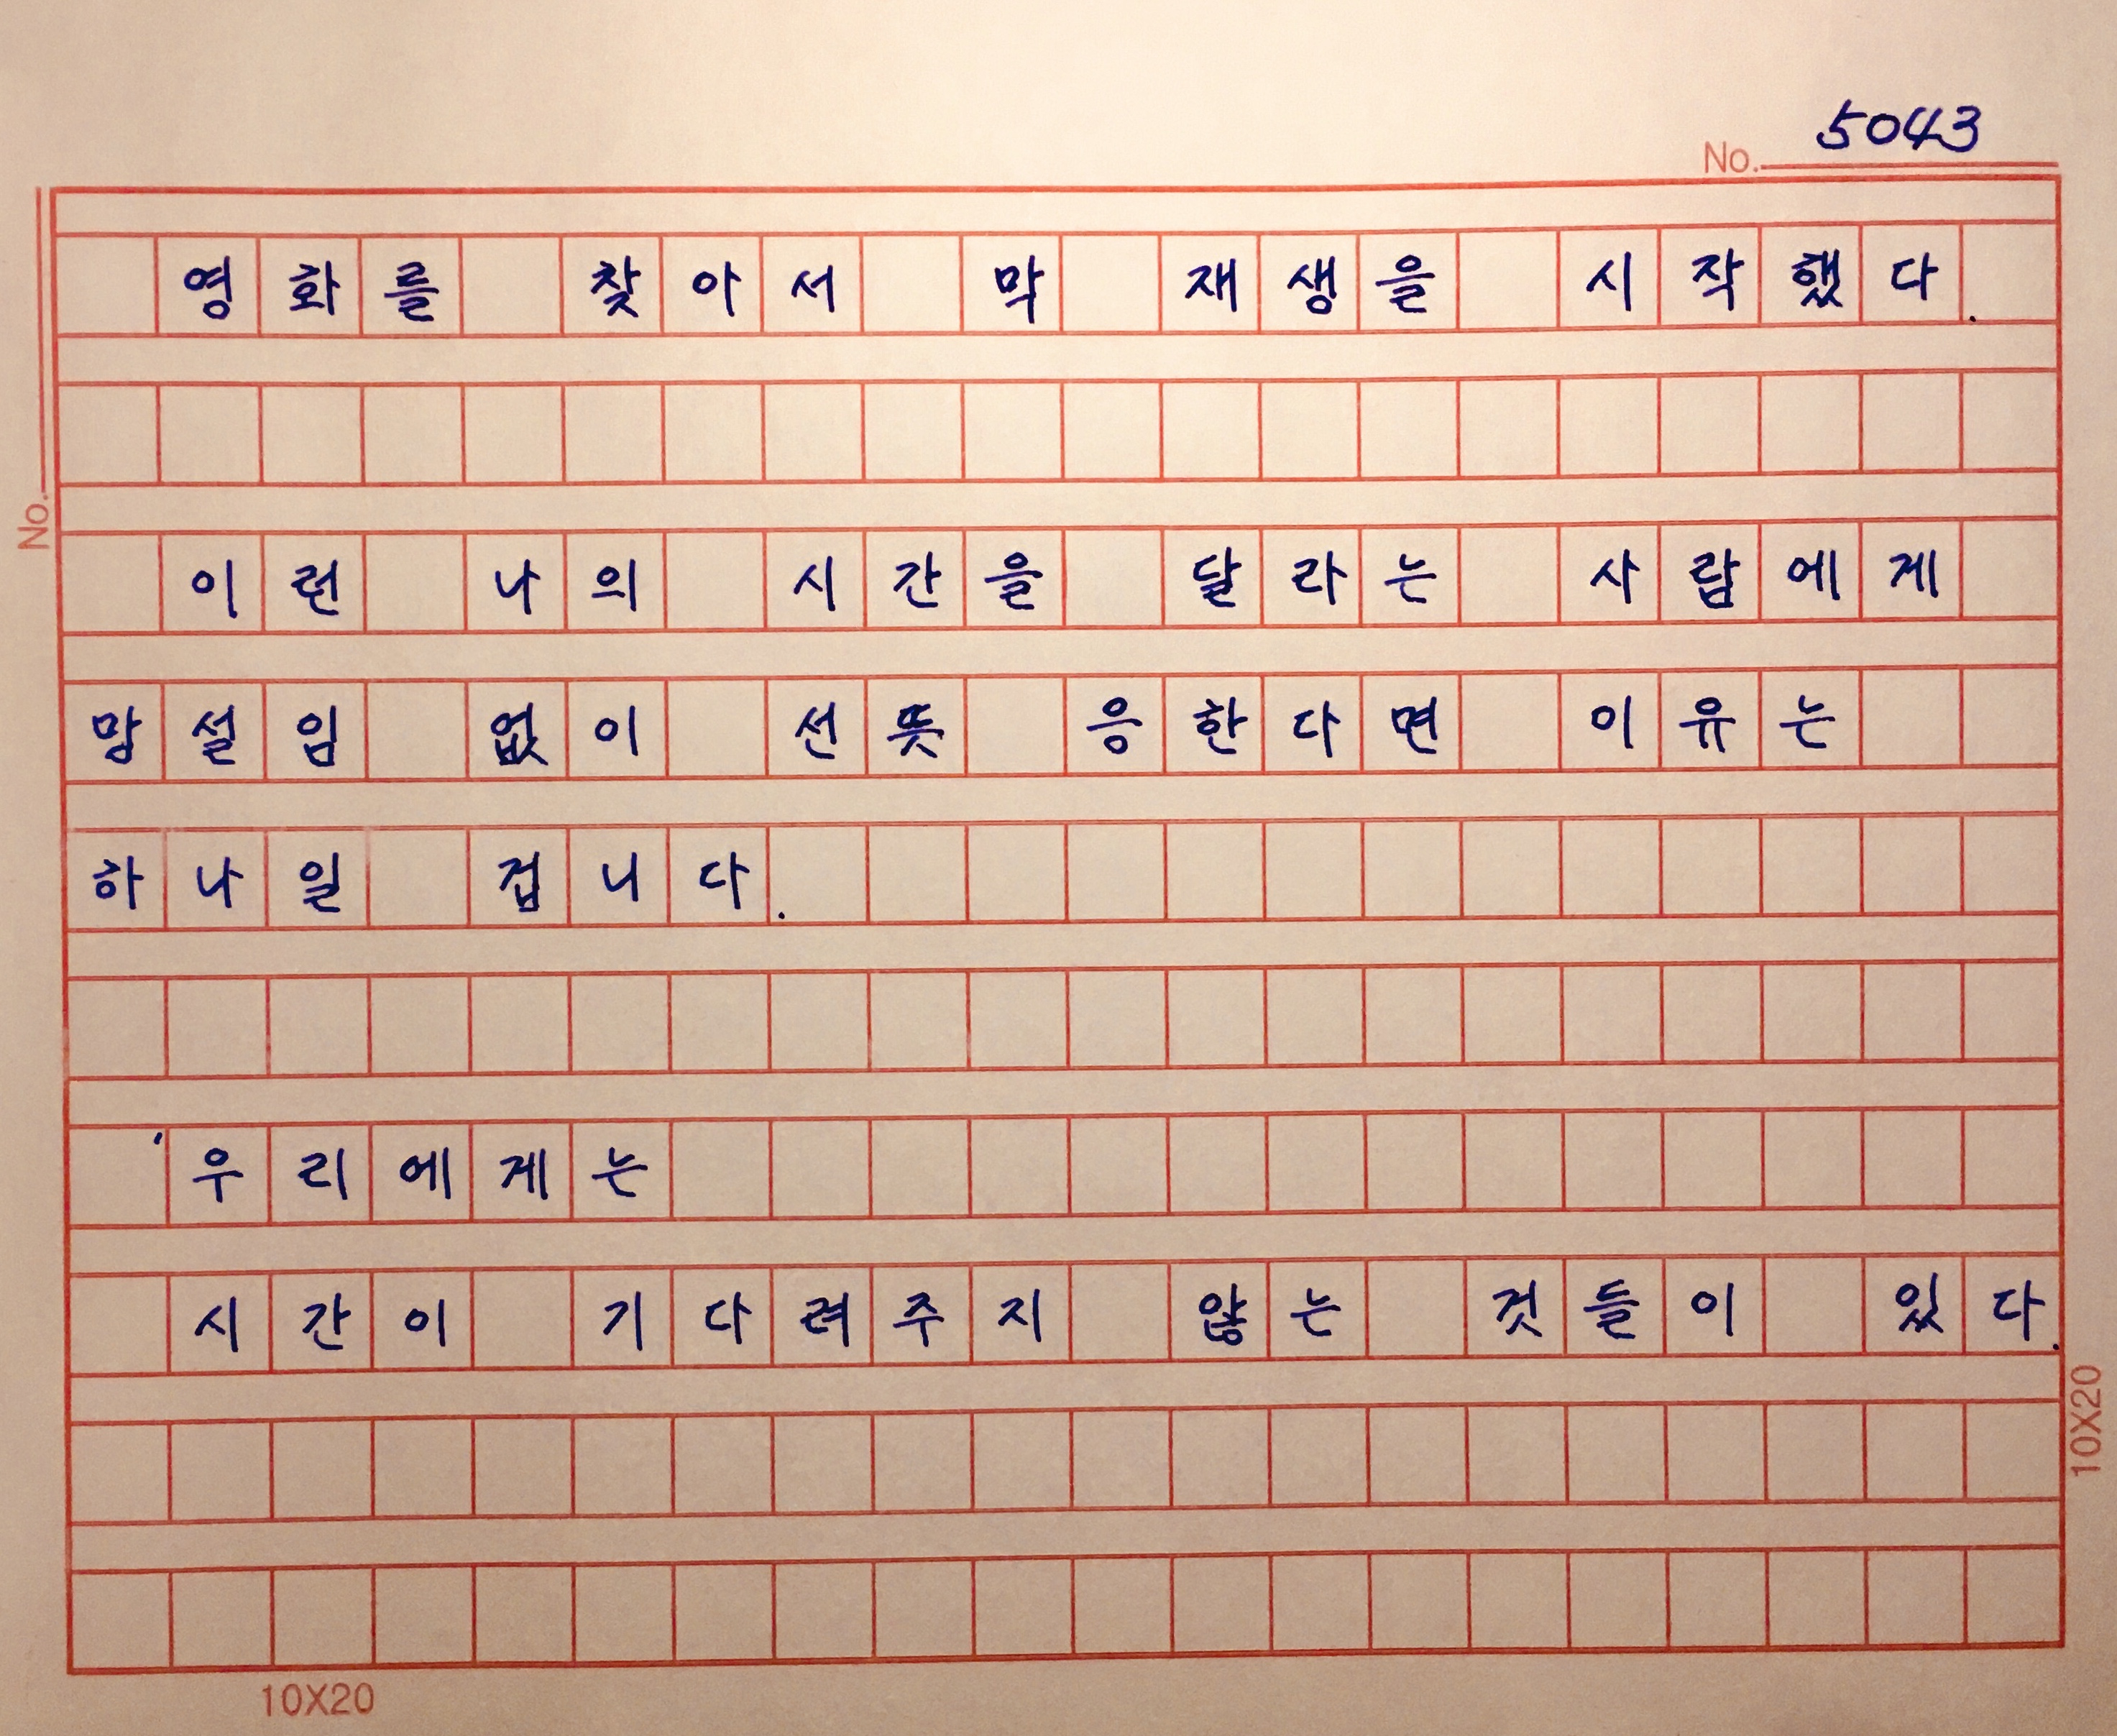 No. 5043
영화를 찾아서 막 재생을 시작했다.
No.
이런 나의 시간을 달라는 사람에게
망설임 없이 선뜻 응한다면 이유는
하나일 겁니다.
'우리에게는
시간이 기다려주지 않는 것들이 있다.
10X20
10X20